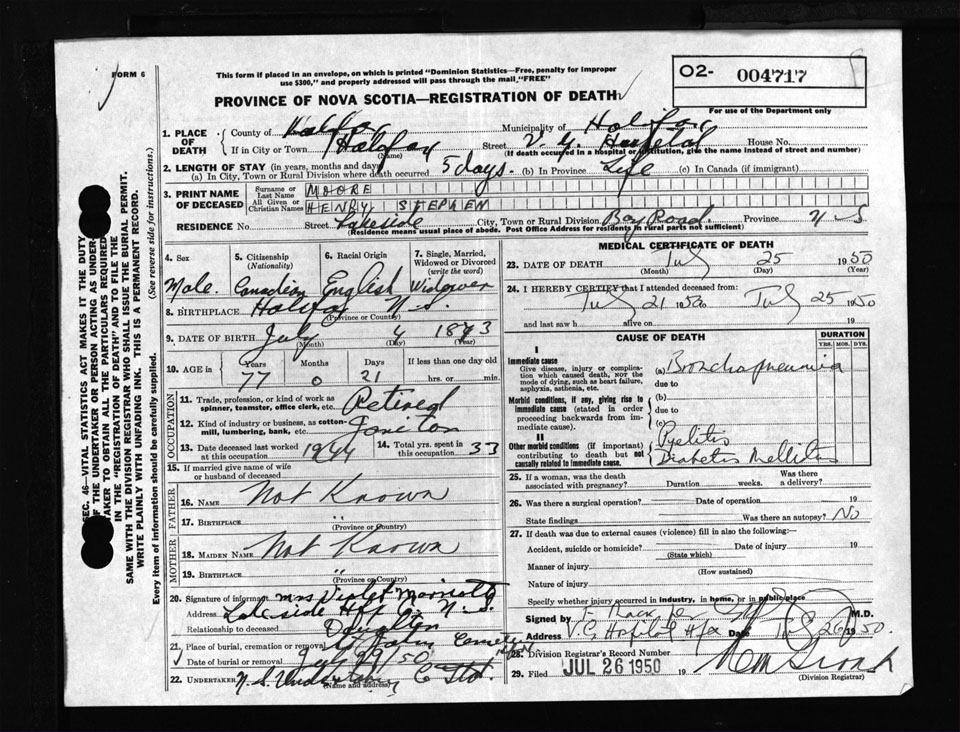 FORM 6
This form if placed in an envelope, on which is printed "Dominion Statistics—Free, penalty for improper
use $300," and properly addressed will pass through the mail "FREE"
O2- 004717
For use of the Department only
PROVINCE OF NOVA SCOTIA—REGISTRATION OF DEATH
SEC. 46—VITAL STATISTICS ACT MAKES IT THE DUTY
OF THE UNDERTAKER OR PERSON ACTING AS UNDER-
TAKER TO OBTAIN ALL THE PARTICULARS REQUIRED
IN THE "REGISTRATION OF DEATH" AND TO FILE THE
SAME WITH THE DIVISION REGISTRAR WHO SHALL ISSUE THE BURIAL PERMIT.
WRITE PLAINLY WITH UNFADING INK. THIS IS A PERMANENT RECORD.
Every item of information should be carefully supplied. (See reverse side for instructions.)
1. PLACE OF DEATH
County of Halifax Municipality of Halifax
If in City or Town Halifax (Name) Street V. G. Hospital House No.
(If death occurred in a hospital or institution, give the name instead of street and number)
2. LENGTH OF STAY (in years, months and days)
(a) In City, Town or Rural Division where death occurred 5 days. (b) In Province Life (c) In Canada (if immigrant)
3. PRINT NAME OF DECEASED
Surname or Last Name MOORE
All Given or Christian Names HENRY STEPHEN
RESIDENCE No. Street Lakeside City, Town or Rural Division Bay Road. Province N S
(Residence means usual place of abode. Post Office Address for residents in rural parts not sufficient)
4. Sex Male.
5. Citizenship (Nationality) Canadian
6. Racial Origin English
7. Single, Married, Widowed or Divorced (write the word) Widower
8. BIRTHPLACE Halifax N.S.
(Province or Country)
9. DATE OF BIRTH July 4 1873
(Month) (Day) (Year)
10. AGE in Years 77 Months 0 Days 21 If less than one day old hrs. or min.
OCCUPATION
11. Trade, profession, or kind of work as spinner, teamster, office clerk, etc. Retired
12. Kind of industry or business, as cotton-mill, lumbering, bank, etc. Janitor
13. Date deceased last worked at this occupation 1944
14. Total yrs. spent in this occupation 33
15. If married give name of wife or husband of deceased
FATHER
16. NAME Not Known
17. BIRTHPLACE "
(Province or Country)
MOTHER
18. MAIDEN NAME Not Known
19. BIRTHPLACE "
(Province or Country)
20. Signature of informant Mrs Violet Marriott
Address Lakeside Hfx Co. N.S.
Relationship to deceased Daughter
21. Place of burial, cremation or removal Cemetery
Date of burial or removal July 50
22. UNDERTAKER N.S. Undertaking Co
(Name and address)
MEDICAL CERTIFICATE OF DEATH
23. DATE OF DEATH July 25 1950
(Month) (Day) (Year)
24. I HEREBY CERTIFY that I attended deceased from:
July 21 1950 July 25 1950
and last saw h alive on 19
CAUSE OF DEATH
DURATION
YRS. MOS. DYS.
I
Immediate cause
Give disease, injury or complication which caused death, NOT the mode of dying, such as heart failure, asphyxia, asthenia, etc.
(a) Bronchopneumonia
due to
Morbid conditions, if any, giving rise to immediate cause (stated in order proceeding backwards from immediate cause).
(b)
due to
(c)
II
Other morbid conditions (if important) contributing to death but not causally related to immediate cause.
Pyelitis
Diabetes Mellitus
25. If a woman, was the death associated with pregnancy? Duration weeks. Was there a delivery?
26. Was there a surgical operation? Date of operation 19
State findings Was there an autopsy? No
27. If death was due to external causes (violence) fill in also the following:
Accident, suicide or homicide? Date of injury 19
(State which)
Manner of injury
(How sustained)
Nature of injury
Specify whether injury occurred in industry, in home, or in public place
Signed by M.D.
Address V.G. Hospital Hfx Date July 26 1950.
28. Division Registrar's Record Number
29. Filed JUL 26 1950
(Division Registrar)